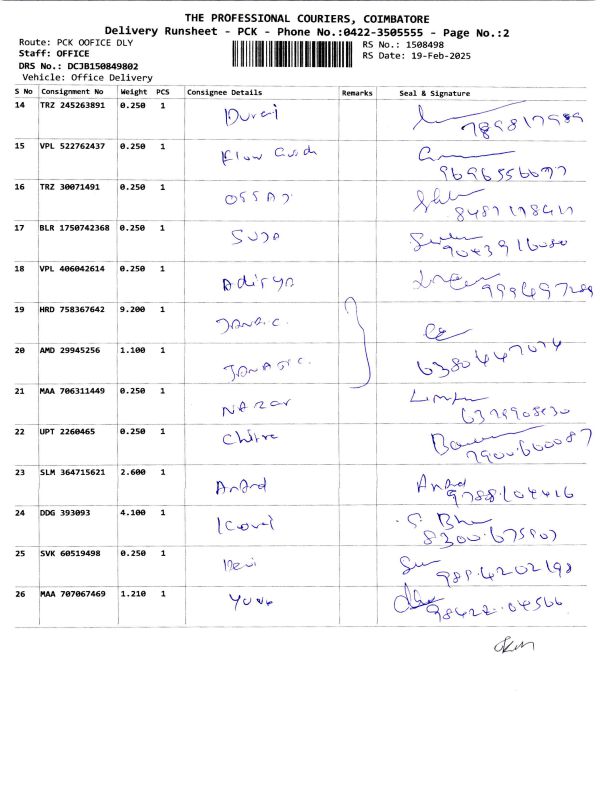 THE PROFESSIONAL COURIERS, COIMBATORE
Delivery Runsheet - PCK - Phone No.:0422-3505555 - Page No.:2
Route: PCK OOFICE DLY
RS No.: 1508498
Staff: OFFICE
RS Date: 19-Feb-2025
DRS No.: DCJB150849802
Vehicle: Office Delivery
S No Consignment No Weight PCS Consignee Details Remarks Seal & Signature
14 TRZ 245263891 0.250 1 Durai
15 VPL 522762437 0.250 1
16 TRZ 30071491 0.250 1
17 BLR 1750742368 0.250 1 SUJA
18 VPL 406042614 0.250 1 Aditya
19 HRD 758367642 9.200 1
20 AMD 29945256 1.100 1
6380447074
21 MAA 706311449 0.250 1 NAZAR
22 UPT 2260465 0.250 1 Chitra
23 SLM 364715621 2.600 1 Anand Anand
9788104416
24 DDG 393093 4.100 1
25 SVK 60519498 0.250 1 Devi
26 MAA 707067469 1.210 1
98422-04566